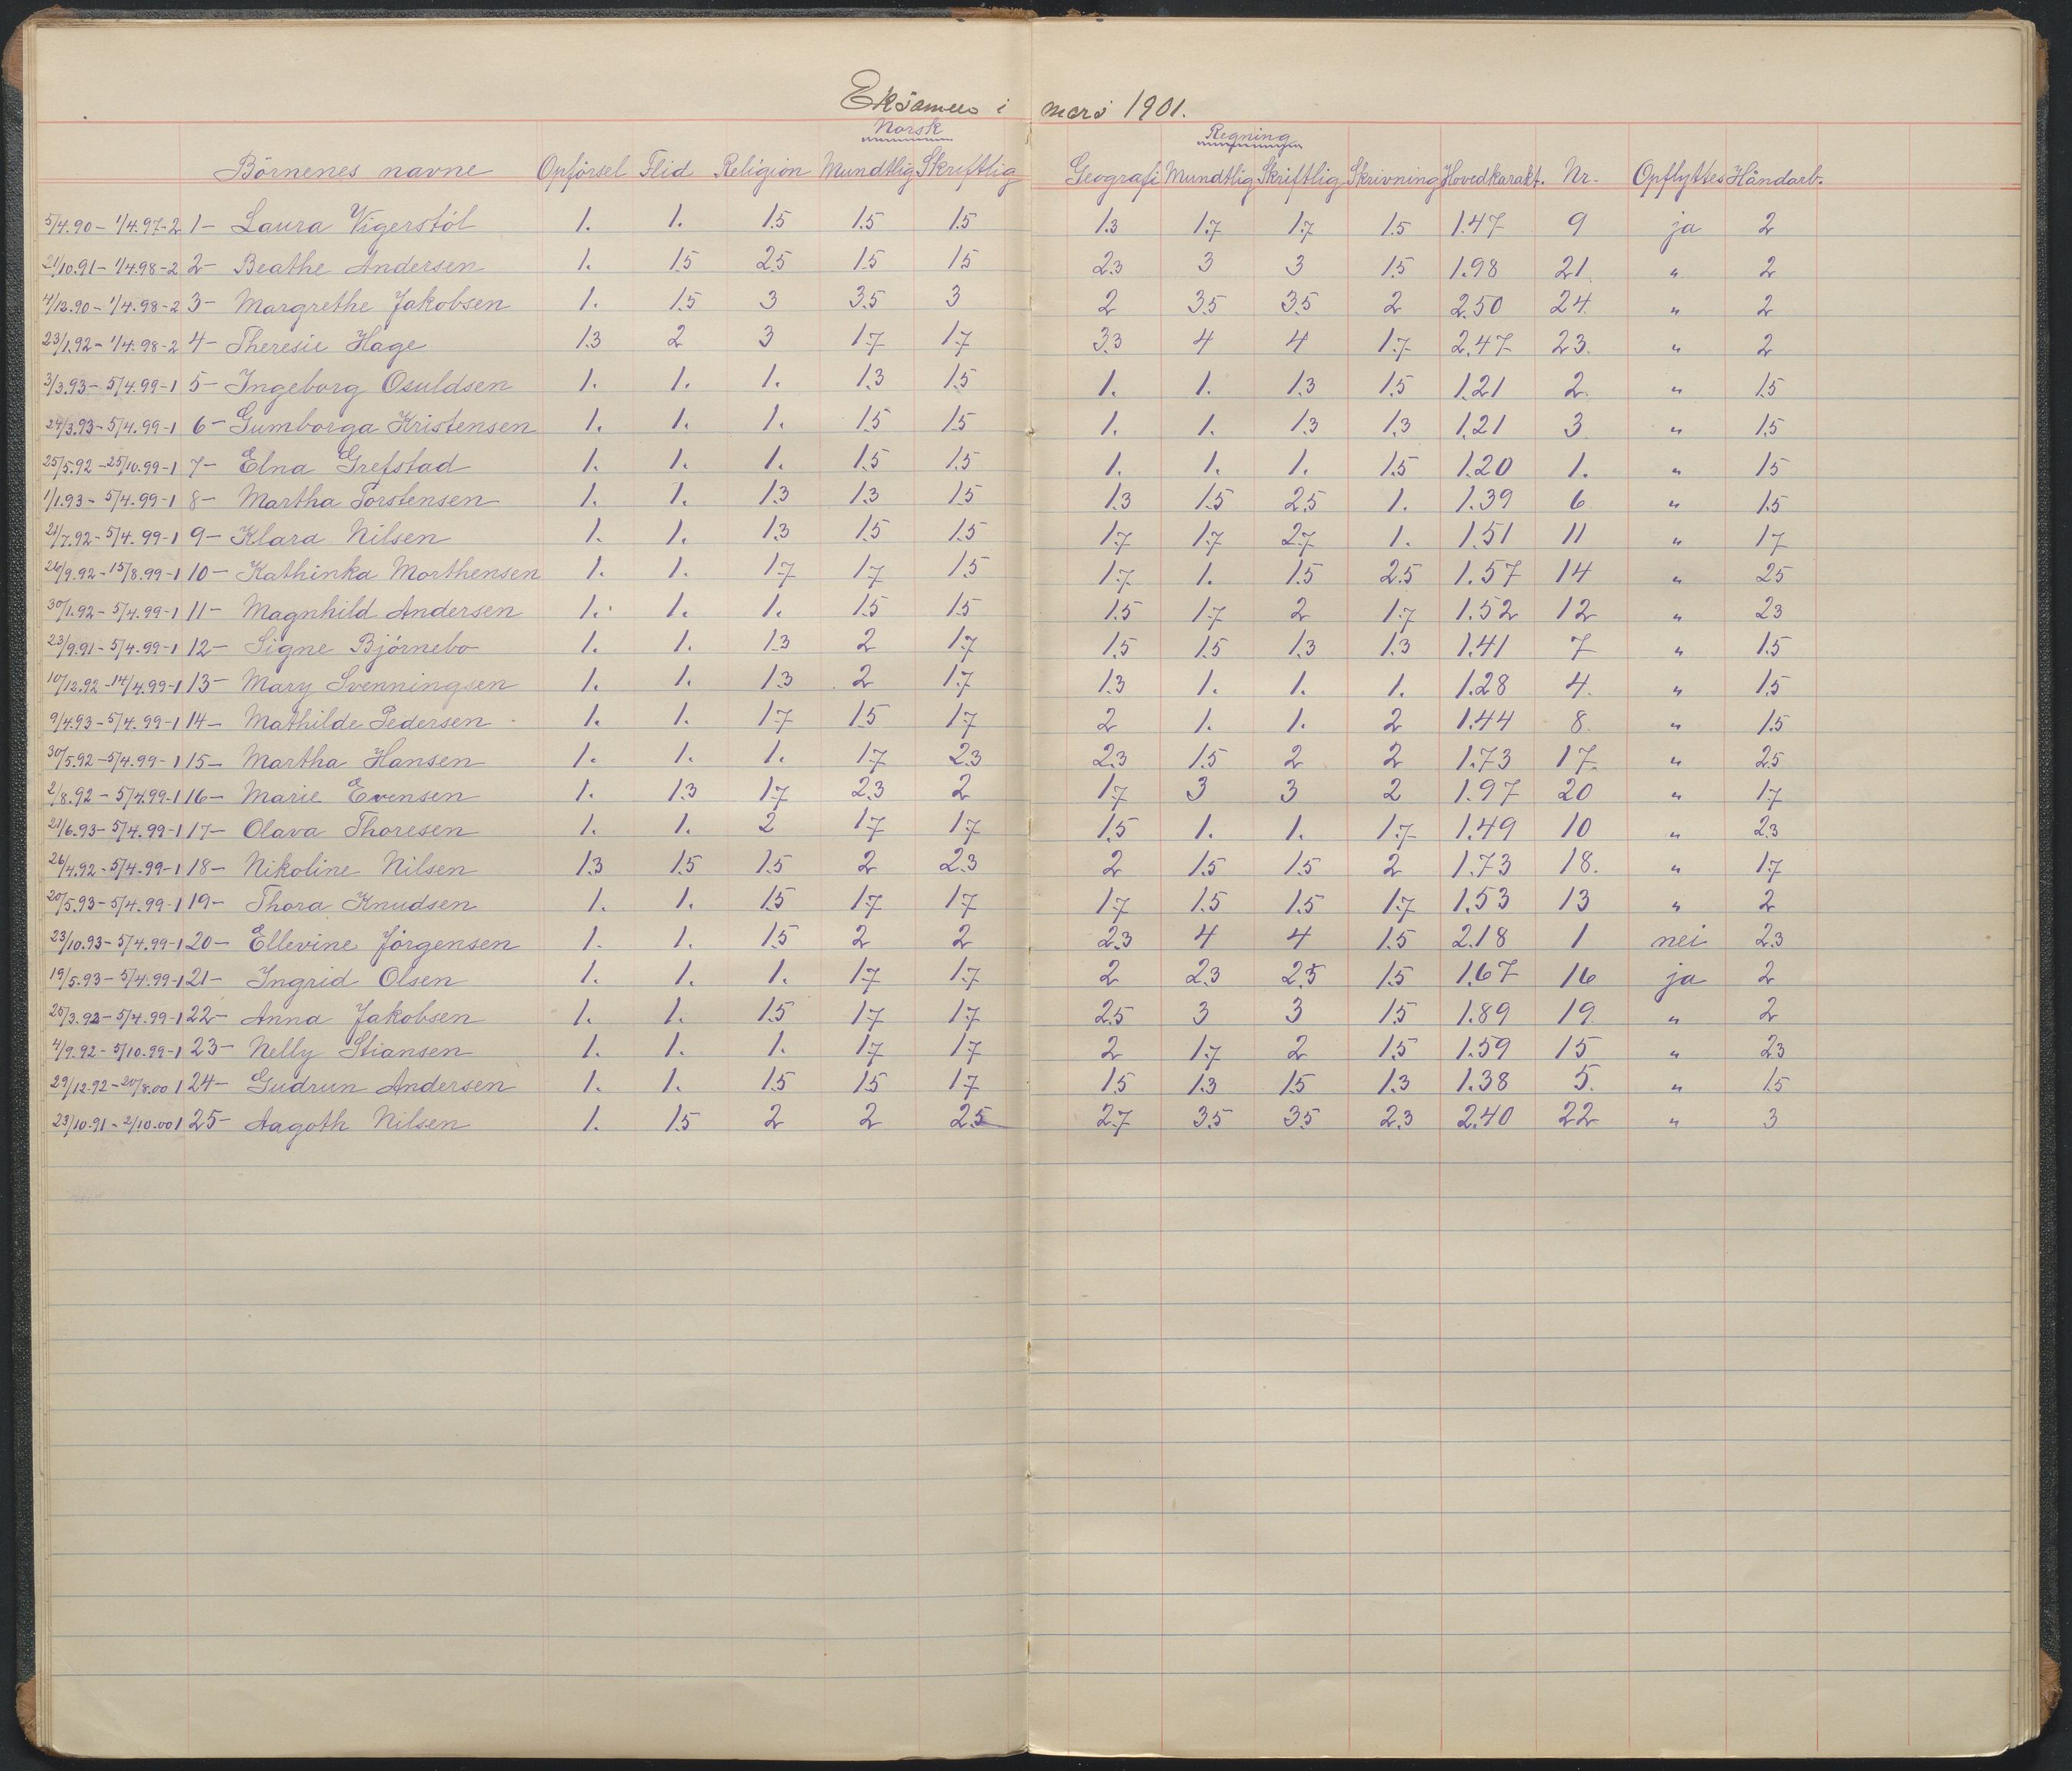 Eksamen i mars 1901.
Norsk Regning
Börnenes navne Opförsel Flid Religion Mundtlig Skriftlig Geografi Mundtlig Skriftlig Skrivning Hovedkarakt. Nr. Opflyttes Håndarb.
5/4.90 - 1/4.97-2 1- Laura Vigerstöl 1. 1. 1.5 1.5 1.5 1.3 1.7 1.7 1.5 1.47 9 ja 2
21/10.91 - 1/4.98-2 2- Beathe Andersen 1. 1.5 2.5 1.5 1.5 2.3 3 3 1.5 1.98 21 " 2
4/12.90 - 1/4.98-2 3- Margrethe Jakobsen 1. 1.5 3 3.5 3 2 3.5 3.5 2 2.50 24. " 2
23/1.92 - 1/4.98-2 4- Theresie Hage 1.3 2 3 1.7 1.7 3.3 4 4 1.7 2.47 23. " 2
3/3.93 - 5/4.99-1 5- Ingeborg Osuldsen 1. 1. 1. 1.3 1.5 1. 1. 1.3 1.5 1.21 2. " 1.5
24/3.93 - 5/4.99-1 6- Gumborga Kristensen 1. 1. 1. 1.5 1.5 1. 1. 1.3 1.3 1.21 3 " 1.5
25/5.92 - 25/10.99-1 7- Elna Grefstad 1. 1. 1. 1.5 1.5 1. 1. 1. 1.5 1.20 1. " 1.5
1/1.93 - 5/4.99-1 8- Martha Torstensen 1. 1. 1.3 1.3 1.5 1.3 1.5 2.5 1. 1.39 6 " 1.5
21/7.92 - 5/4.99-1 9- Klara Nilsen 1. 1. 1.3 1.5 1.5 1.7 1.7 2.7 1. 1.51 11 " 1.7
26/9.92 - 15/8.99-1 10- Kathinka Morthensen 1. 1. 1.7 1.7 1.5 1.7 1. 1.5 2.5 1.57 14 " 2.5
30/1.92 - 5/4.99-1 11- Magnhild Andersen 1. 1. 1. 1.5 1.5 1.5 1.7 2 1.7 1.52 12 " 2.3
23/9.91 - 5/4.99-1 12- Signe Björnebo 1. 1. 1.3 2 1.7 1.5 1.5 1.3 1.3 1.41 7 " 1.5
10/12.92 - 14/4.99-1 13- Mary Svenningsen 1. 1. 1.3 2 1.7 1.3 1. 1. 1. 1.28 4. " 1.5
9/4.93 - 5/4.99-1 14- Mathilde Pedersen 1. 1. 1.7 1.5 1.7 2 1. 1. 2 1.44 8. " 1.5
30/5.92 - 5/4.99-1 15- Martha Hansen 1. 1. 1. 1.7 2.3 2.3 1.5 2 2 1.73 17. " 2.5
2/8.92 - 5/4.99-1 16- Marie Evensen 1. 1.3 1.7 2.3 2 1.7 3 3 2 1.97 20 " 1.7
21/6.93 - 5/4.99-1 17- Olava Thoresen 1. 1. 2 1.7 1.7 1.5 1. 1. 1.7 1.49 10 " 2.3
26/4.92 - 5/4.99-1 18- Nikoline Nilsen 1.3 1.5 1.5 2 2.3 2 1.5 1.5 2 1.73 18. " 1.7
20/5.93 - 5/4.99-1 19- Thora Knudsen 1. 1. 1.5 1.7 1.7 1.7 1.5 1.5 1.7 1.53 13 " 2
23/10.93 - 5/4.99-1 20- Ellevine Jörgensen 1. 1. 1.5 2 2 2.3 4 4 1.5 2.18 1 nei 2.3
19/5.93 - 5/4.99-1 21- Ingrid Olsen 1. 1. 1. 1.7 1.7 2 2.3 2.5 1.5 1.67 16 ja 2
25/3.92 - 5/4.99-1 22- Anna Jakobsen 1. 1. 1.5 1.7 1.7 2.5 3 3 1.5 1.89 19. " 2
4/9.92 - 5/10.99-1 23- Nelly Stiansen 1. 1. 1. 1.7 1.7 2 1.7 2 1.5 1.59 15 " 2.3
29/12.92 - 20/8.00 1 24- Gudrun Andersen 1. 1. 1.5 1.5 1.7 1.5 1.3 1.5 1.3 1.38 5. " 1.5
23/10.91 - 2/10.00 1 25- Aagoth Nilsen 1. 1.5 2 2 2.5 2.7 3.5 3.5 2.3 2.40 22 " 3